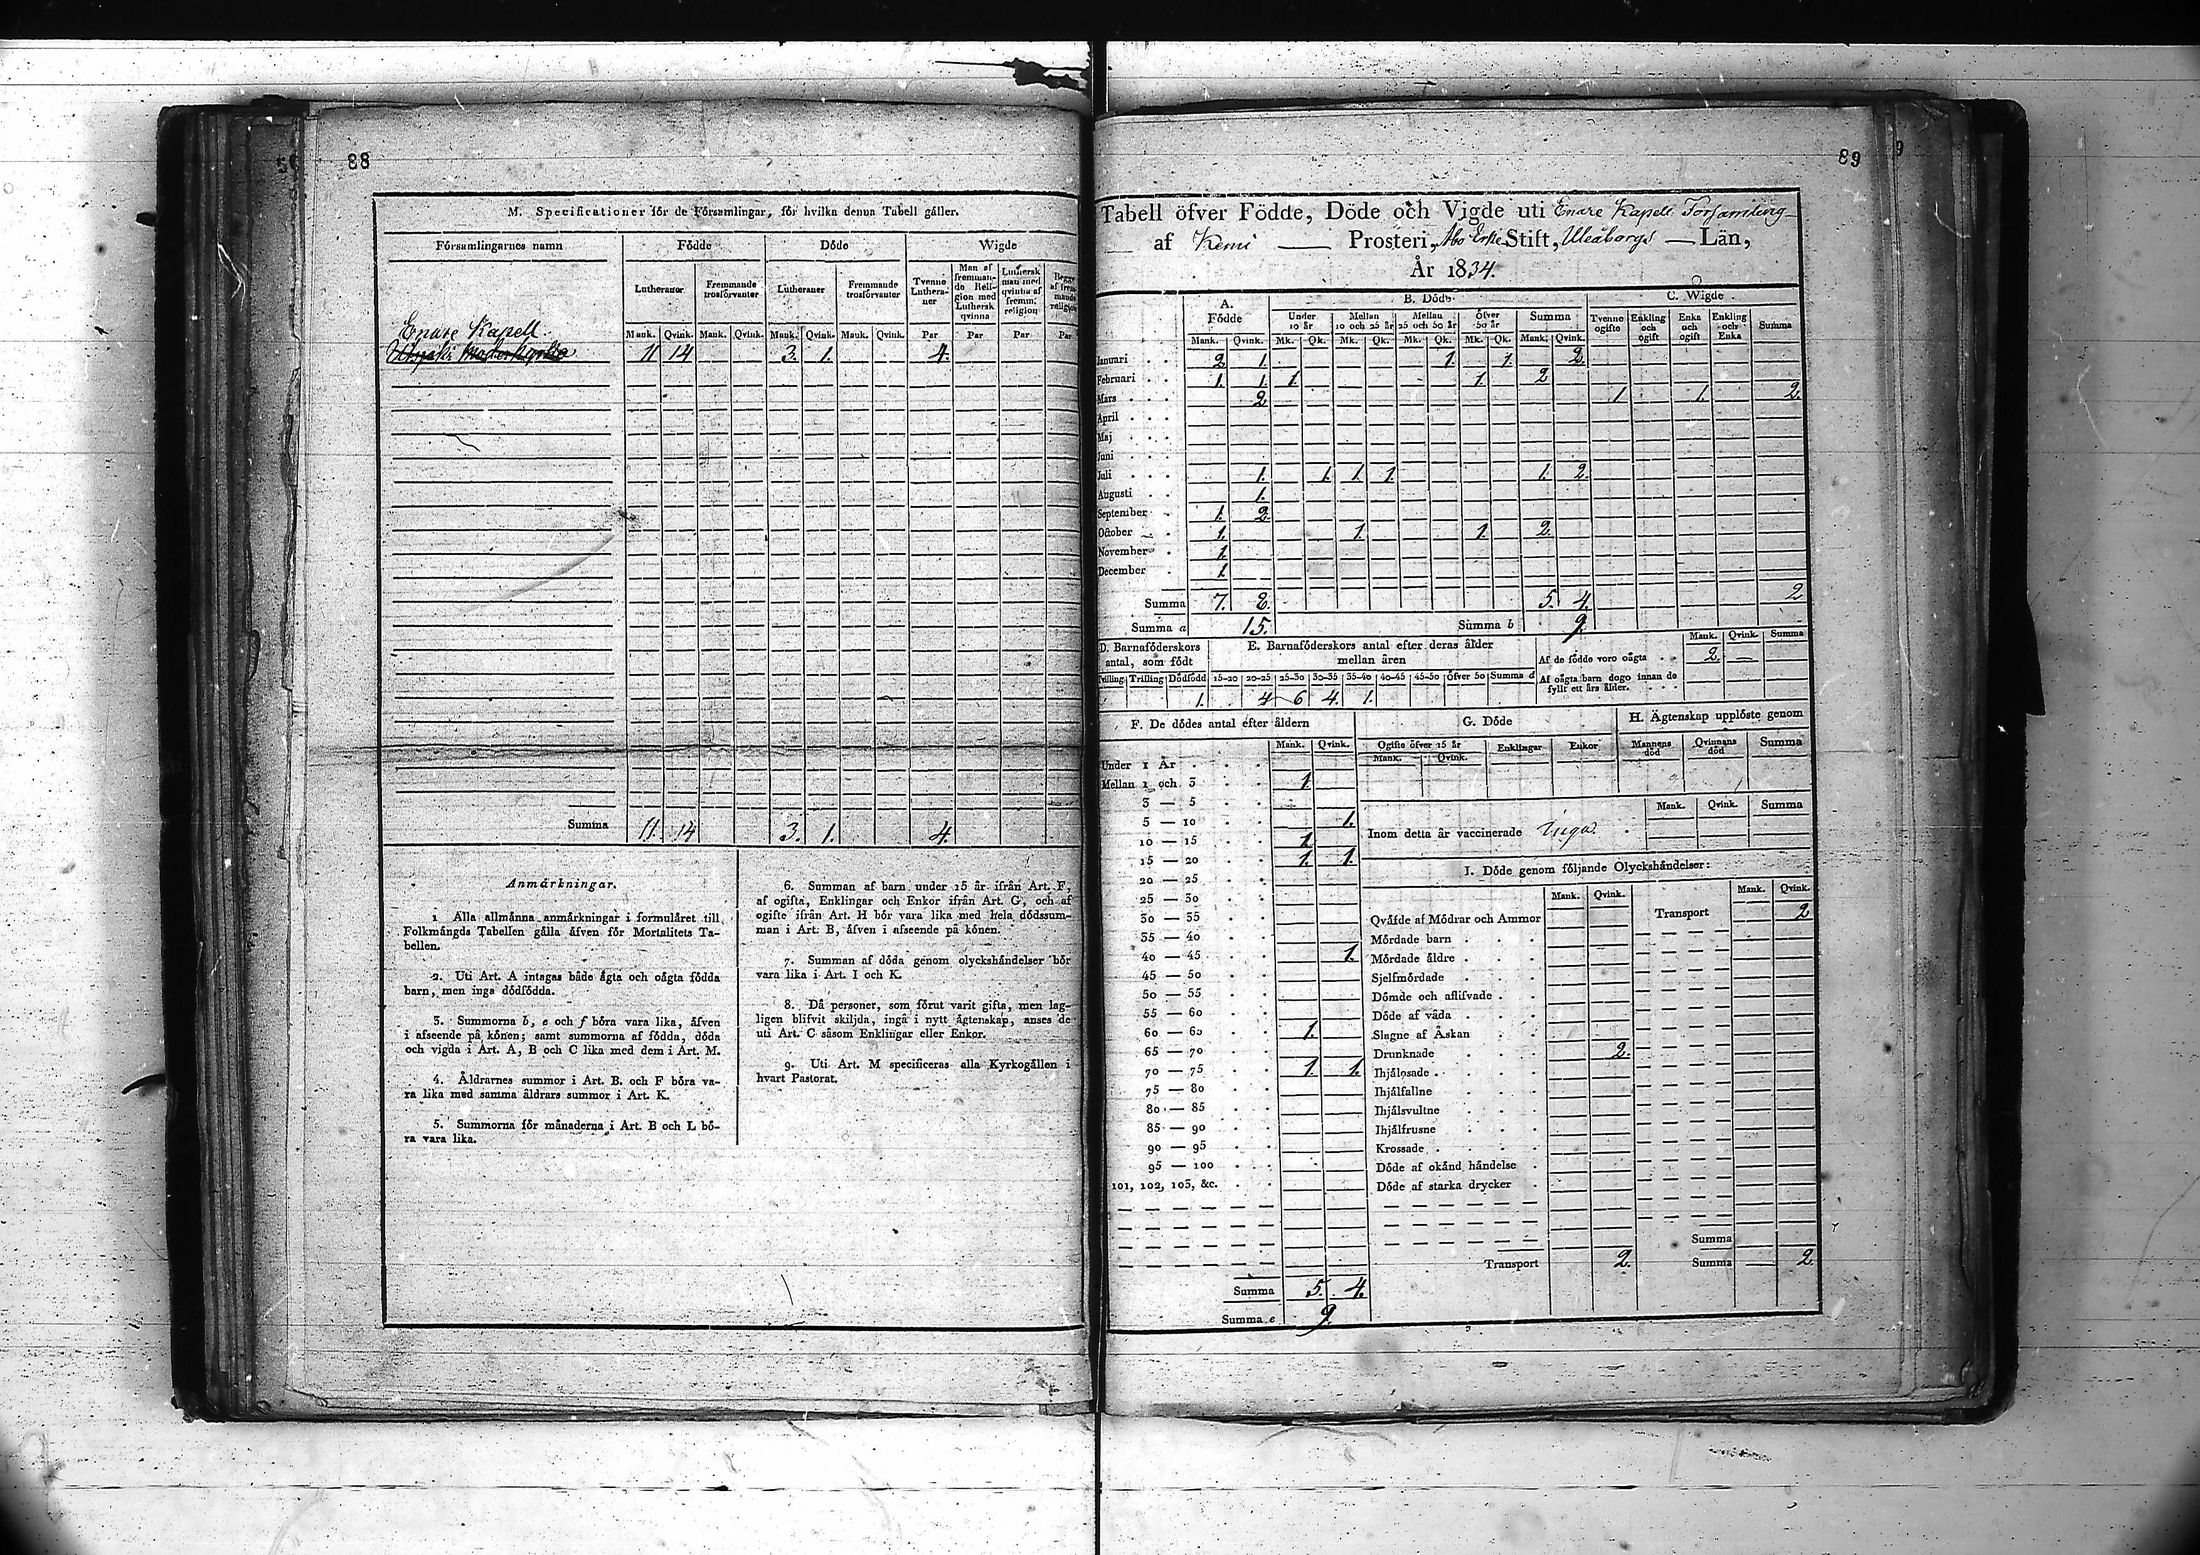 88
M. Specificationer för de Församlingar, för hvilka denna Tabell gäller.
Församlingarnes namn | Födde | Döde | Wigde
Lutheraner | Fremmande trosförvanter | Lutheraner | Fremmande trosförvanter | Tvenne Lutheraner | Man af fremmande Religion med Luthersk qvinna | Luthersk man med qvinna af fremm. religion | Begge af fremmande religion
Mank. | Qvink. | Mank. | Qvink. | Mank. | Qvink. | Mank. | Qvink. | Par | Par | Par | Par
Enare Kapell
Utsjoki Moderkyrka 11 14 3. 1. 4.
Summa 11 14 3. 1. 4.
Anmärkningar.
1 Alla allmänna anmärkningar i formuläret till
Folkmängds Tabellen gälla äfven för Mortalitets Ta-
bellen.
2. Uti Art. A intagas både ägta och oägta födda
barn, men inga dödfödda.
3. Summorna b, e och f böra vara lika, äfven
i afseende på könen; samt summorna af födda, döda
och vigda i Art. A, B och C lika med dem i Art. M.
4. Åldrarnes summor i Art. B. och F böra va-
ra lika med samma åldrars summor i Art. K.
5. Summorna för månaderna i Art. B och L bö-
ra vara lika.
6. Summan af barn under 15 år ifrån Art. F,
af ogifta, Enklingar och Enkor ifrån Art. G, och af
ogifte ifrån Art. H bör vara lika med hela dödssum-
man i Art. B, äfven i afseende på könen.
7. Summan af döda genom olyckshändelser bör
vara lika i Art. I och K.
8. Då personer, som förut varit gifta, men lag-
ligen blifvit skiljda, ingå i nytt ägtenskap, anses de
uti Art. C såsom Enklingar eller Enkor.
9. Uti Art. M specificeras alla Kyrkogällen i
hvart Pastorat.
89
Tabell öfver Födde, Döde och Vigde uti Enare Kapell Församling
af Kemi Prosteri, Åbo Erke Stift, Uleåborgs Län,
År 1834.
A. Födde | B. Döde | C. Wigde
Under 10 år | Mellan 10 och 25 år | Mellan 25 och 50 år | Öfver 50 år | Summa | Tvenne ogifte | Enkling och ogift | Enka och ogift | Enkling och Enka | Summa
Mank. | Qvink. | Mk. | Qk. | Mk. | Qk. | Mk. | Qk. | Mk. | Qk. | Mank. | Qvink.
Januari 2 1. 1. 1. 2.
Februari 1. 1. 1. 1. 2
Mars 2 1 1. 2.
April
Maj
Juni
Juli 1. 1. 1. 1. 1. 2.
Augusti 1.
September 1. 2.
October 1. 1. 1. 2.
November 1.
December 1.
Summa 7. 8. 5. 4. 2
Summa a 15. Summa b 9.
D. Barnaföderskors antal, som födt
Tvilling | Trilling | Dödfödd
1.
E. Barnaföderskors antal efter deras ålder mellan åren
15-20 | 20-25 | 25-30 | 30-35 | 35-40 | 40-45 | 45-50 | Öfver 50 | Summa d
4 6 4. 1.
Mank. | Qvink. | Summa
Af de födde voro oägta 2. —
Af oägta barn dogo innan de fyllt ett års ålder.
F. De dödes antal efter åldern
Mank. | Qvink.
Under 1 År
Mellan 1 och 3 1.
3 — 5
5 — 10 1.
10 — 15 1.
15 — 20 1. 1.
20 — 25
25 — 30
30 — 35
35 — 40
40 — 45 1.
45 — 50
50 — 55
55 — 60
60 — 65 1.
65 — 70
70 — 75 1. 1.
75 — 80
80 — 85
85 — 90
90 — 95
95 — 100
101, 102, 103, &c.
Summa 5. 4.
Summa e 9.
G. Döde
Ogifte öfver 15 år | Enklingar | Enkor
Mank. | Qvink.
H. Ägtenskap upplöste genom
Mannens död | Qvinnans död | Summa
Mank. | Qvink. | Summa
Inom detta år vaccinerade Inga.
I. Döde genom följande Olyckshändelser:
Mank. | Qvink. | Mank. | Qvink.
Qväfde af Mödrar och Ammor
Transport 2
Mördade barn
Mördade äldre
Sjelfmördade
Dömde och aflifvade
Döde af våda
Slagne af Åskan
Drunknade 2.
Ihjälosade
Ihjälfallne
Ihjälsvultne
Ihjälfrusne
Krossade
Döde af okänd händelse
Döde af starka drycker
Summa
Transport 2. Summa 2